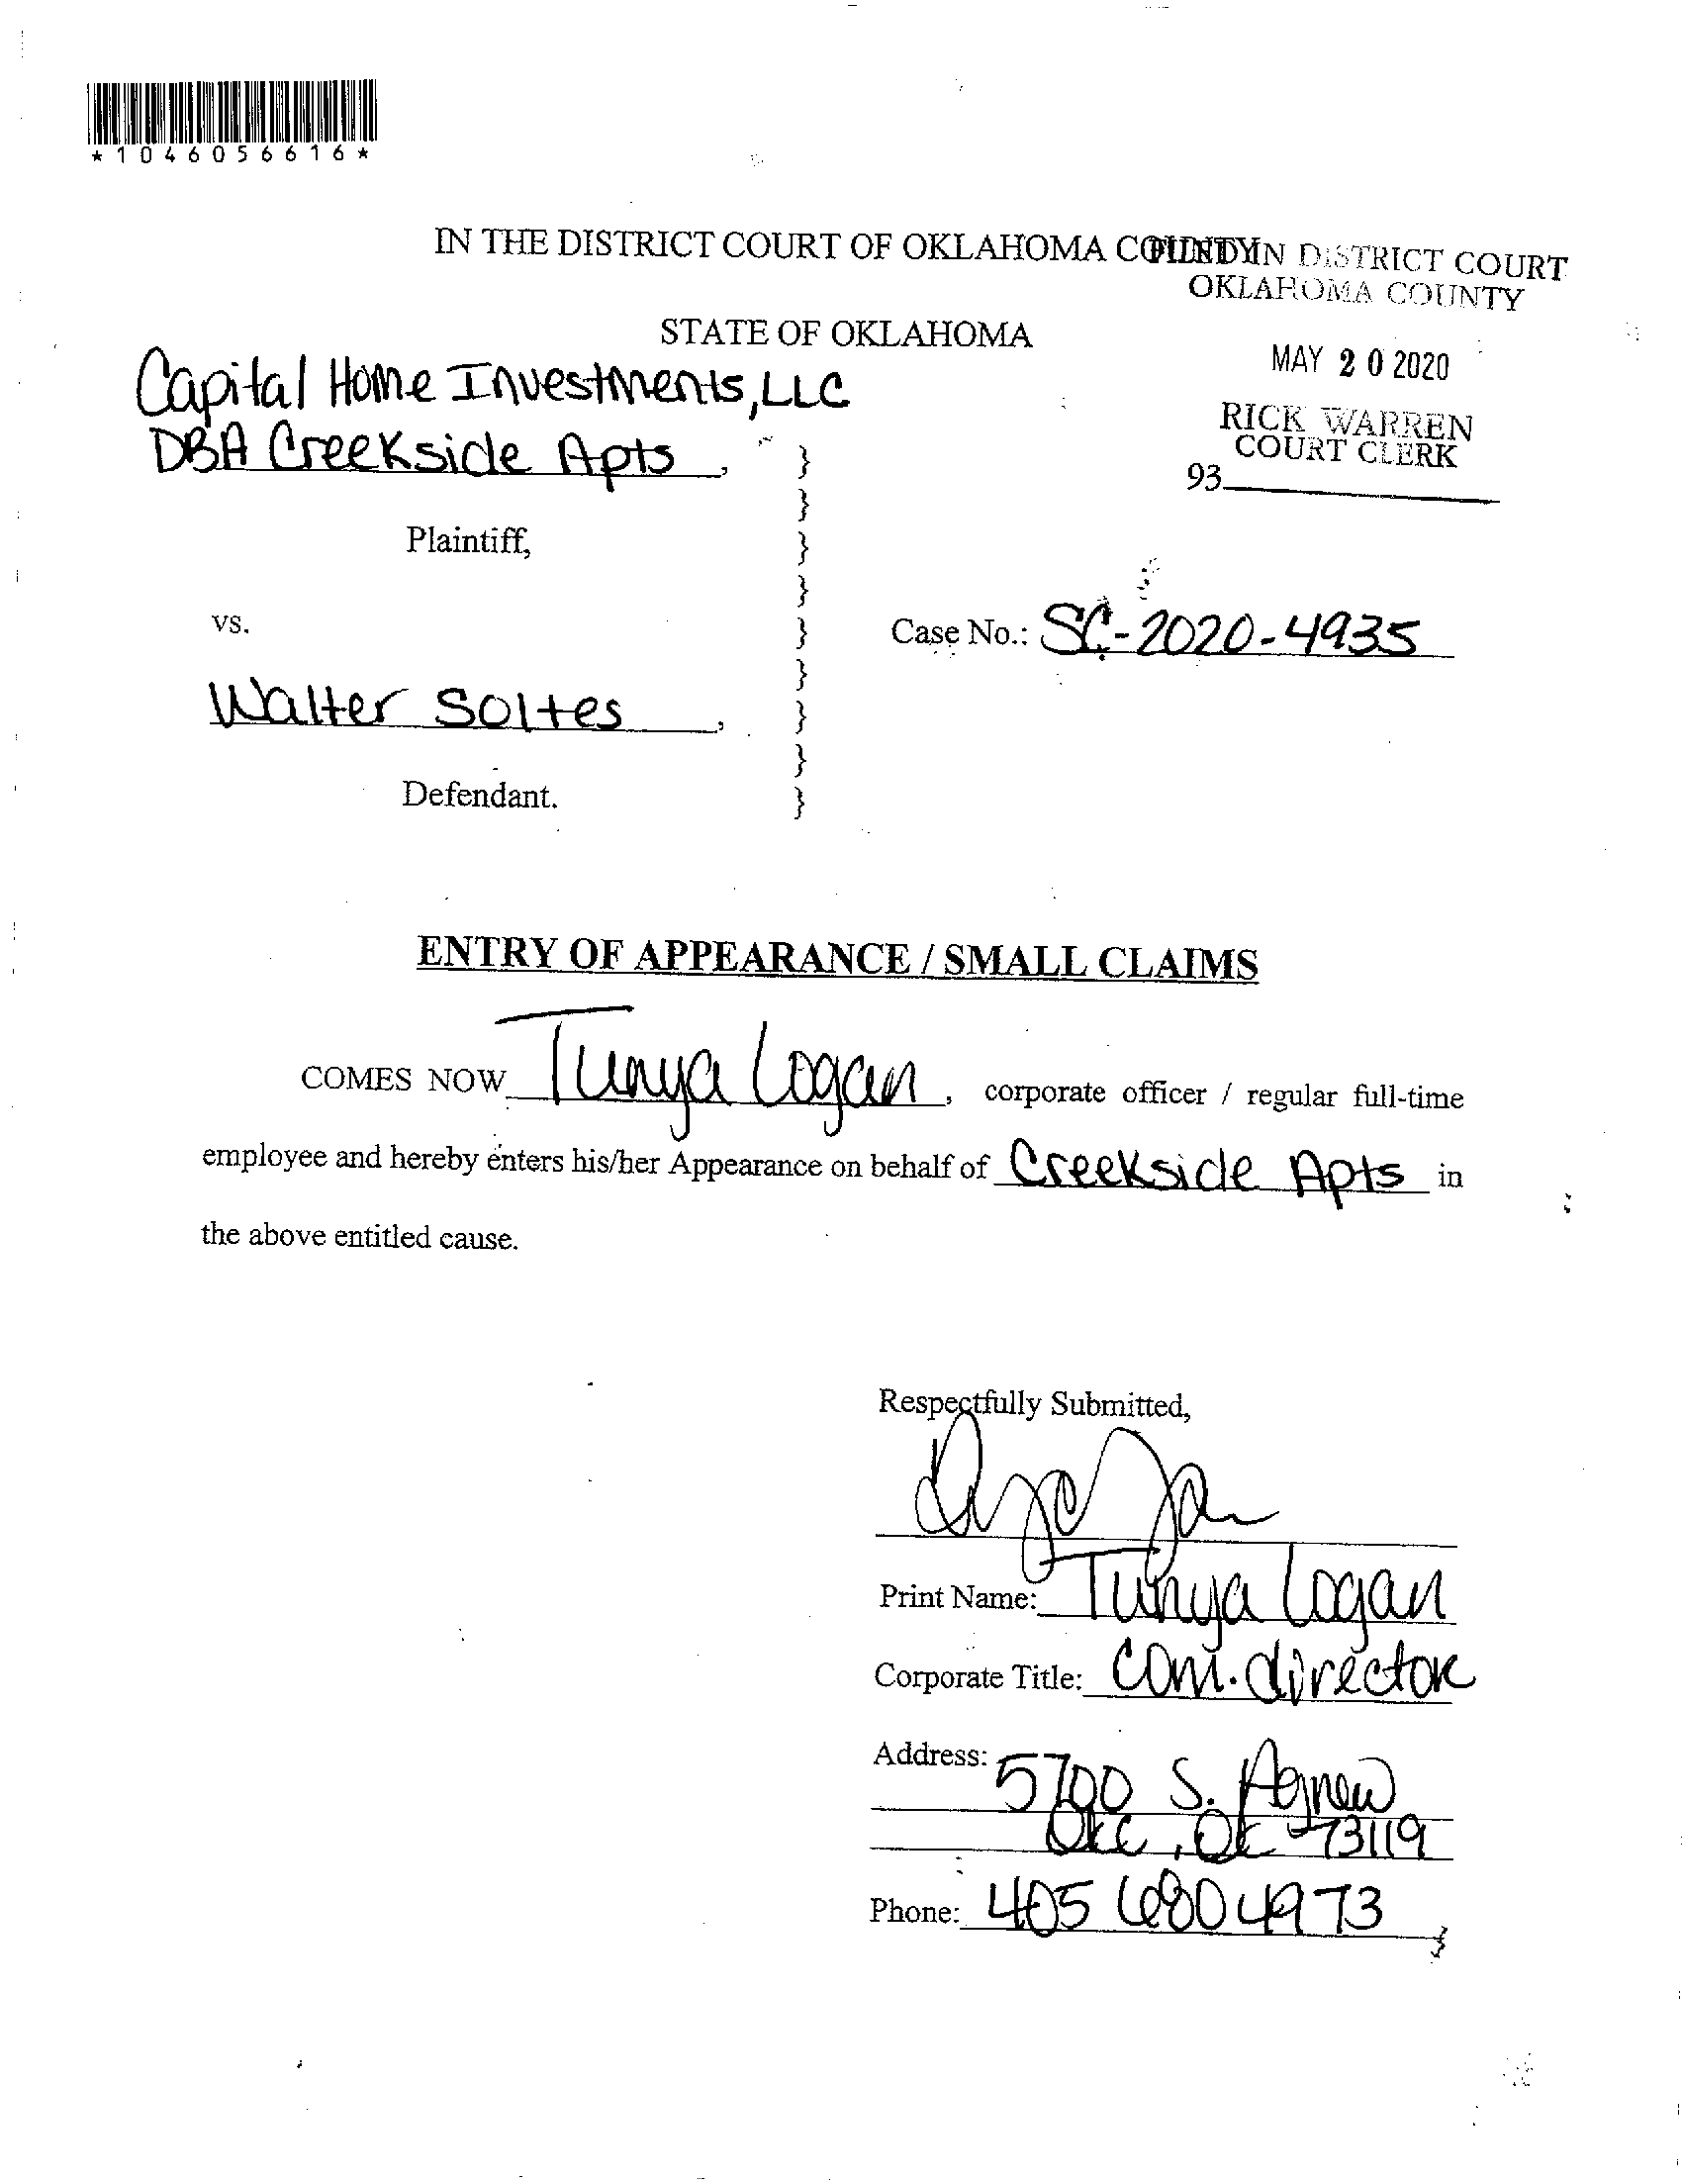 *1046056616*
IN THE DISTRICT COURT OF OKLAHOMA COUNTY
FILED IN DISTRICT COURT
OKLAHOMA COUNTY
STATE OF OKLAHOMA
MAY 20 2020
RICK WARREN
COURT CLERK
93
Capital Home Investments, LLC
DBA Creekside Apts,
}
}
Plaintiff, }
}
vs. } Case No.: SC-2020-4935
}
Walter Soltes, }
}
Defendant. }
ENTRY OF APPEARANCE / SMALL CLAIMS
COMES NOW Tunya Logan, corporate officer / regular full-time
employee and hereby enters his/her Appearance on behalf of Creekside Apts in
the above entitled cause.
Respectfully Submitted,
Print Name: Tunya Logan
Corporate Title: com. director
Address: 5700 S. Agnew
OKC, OK 73119
Phone: 405 680 4973